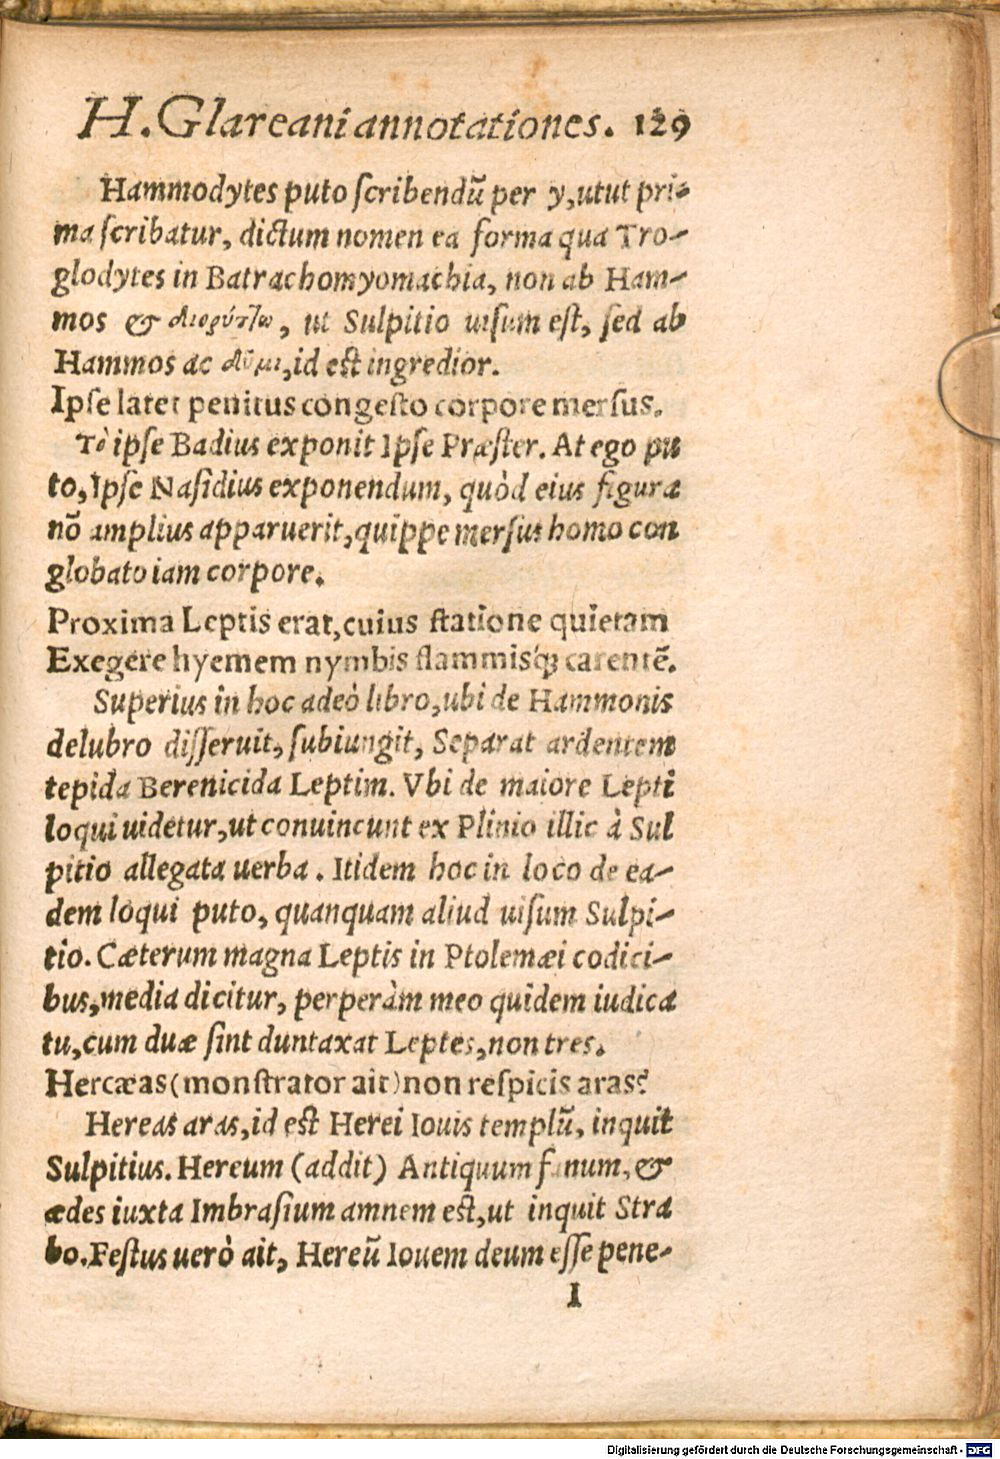 H. Glareani annotationes. 129
Hammodytes puto ſcribendũ per y, utut pri-
ma ſcribatur, dictum nomen ea forma qua Tro-
glodytes in Batrachomyomachia, non ab Ham-
mos & , ut Sulpitio uiſum eſt, ſed ab
Hammos ac δῦμι, id eſt ingredior.
Ipſe latet penitus congeſto corpore merſus.
Tὸ ipſe Badius exponit Ipſe Præſter. At ego pu
to, Ipſe Naſidius exponendum, quòd eius figura
nõ amplius apparuerit, quippe merſus homo con
globato iam corpore.
Proxima Leptis erat, cuius ſtatione quietam
Exegere hyemem nymbis flammisꝗ́; carentẽ.
Superius in hoc adeò libro, ubi de Hammonis
delubro diſſeruit, ſubiungit, Separat ardentem
tepida Berenicida Leptim. Vbi de maiore Lepti
loqui uidetur, ut conuincunt ex Plinio illic à Sul
pitio allegata uerba. Itidem hoc in loco de ea-
dem loqui puto, quanquam aliud uiſum Sulpi-
tio. Cæterum magna Leptis in Ptolemæi codici-
bus, media dicitur, perperàm meo quidem iudica
tu, cum duæ ſint duntaxat Leptes, non tres.
Hercæas (monſtrator ait) non reſpicis aras?
Hereas aras, id eſt Herei Iouis templũ, inquit
Sulpitius. Hereum (addit) Antiquum fanum, &
ædes iuxta Imbraſium amnem eſt, ut inquit Stra
bo. Feſtus uerò ait, Hereũ Iouem deum eſſe pene-
I
Digitalisierung gefördert durch die Deutsche Forschungsgemeinschaft - DFG